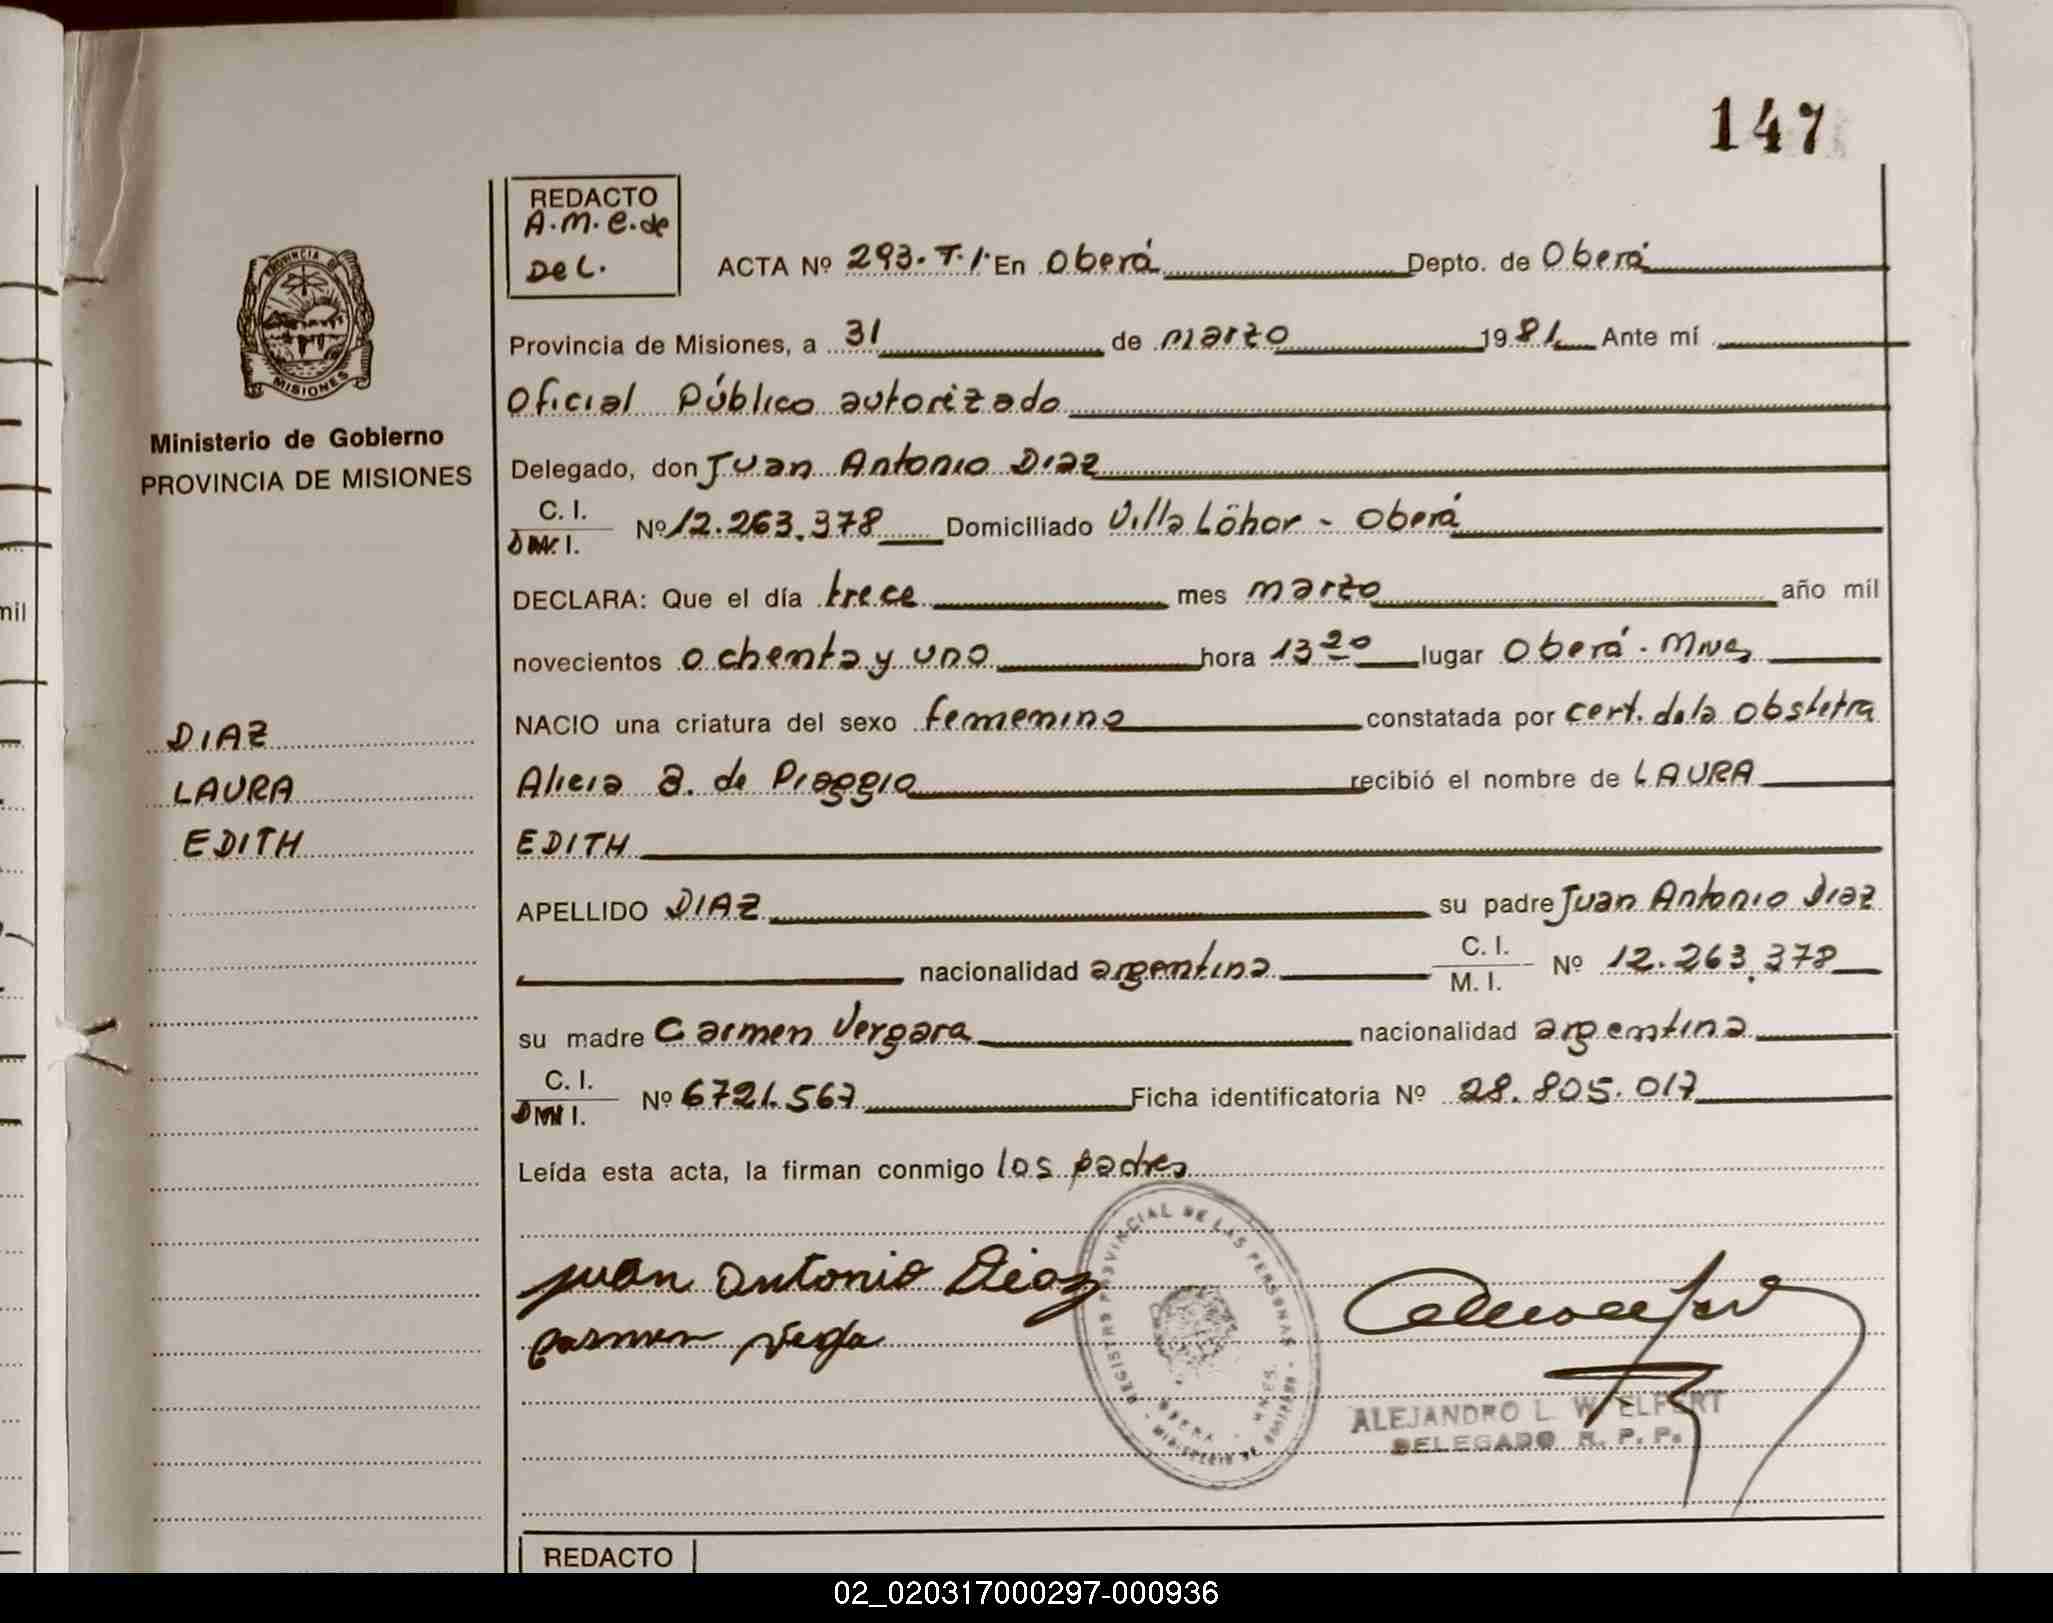 147
REDACTO
A.M.C.de
Del.
PROVINCIA DE
MISIONES
ACTA Nº 293.T.1. En Oberá Depto. de Oberá
Provincia de Misiones, a 31 de marzo 1981 Ante mí
Oficial Público autorizado
Ministerio de Gobierno
PROVINCIA DE MISIONES
Delegado, don Juan Antonio Diaz
C. I.
D.N.I. Nº 12.263.378 Domiciliado Villa Löhor - Oberá
DECLARA: Que el día trece mes marzo año mil
mil
novecientos ochenta y uno hora 13 20 lugar Oberá - Mnes
NACIO una criatura del sexo femenino constatada por cert. de la obstetra
Alicia a. de Piaggio recibió el nombre de LAURA
EDITH
DIAZ
LAURA
EDITH
APELLIDO DIAZ su padre Juan Antonio Diaz
nacionalidad argentina C. I.
M. I. Nº 12.263.378
su madre Carmen Vergara nacionalidad argentina
C. I.
D.N.I. Nº 6721.567 Ficha identificatoria Nº 28.805.017
Leída esta acta, la firman conmigo los padres
Juan Antonio Diaz
Carmen
REGISTRO PROVINCIAL DE LAS PERSONAS
ALEJANDRO L. WELFERT
DELEGADO R. P. P.
REDACTO
02_020317000297-000936